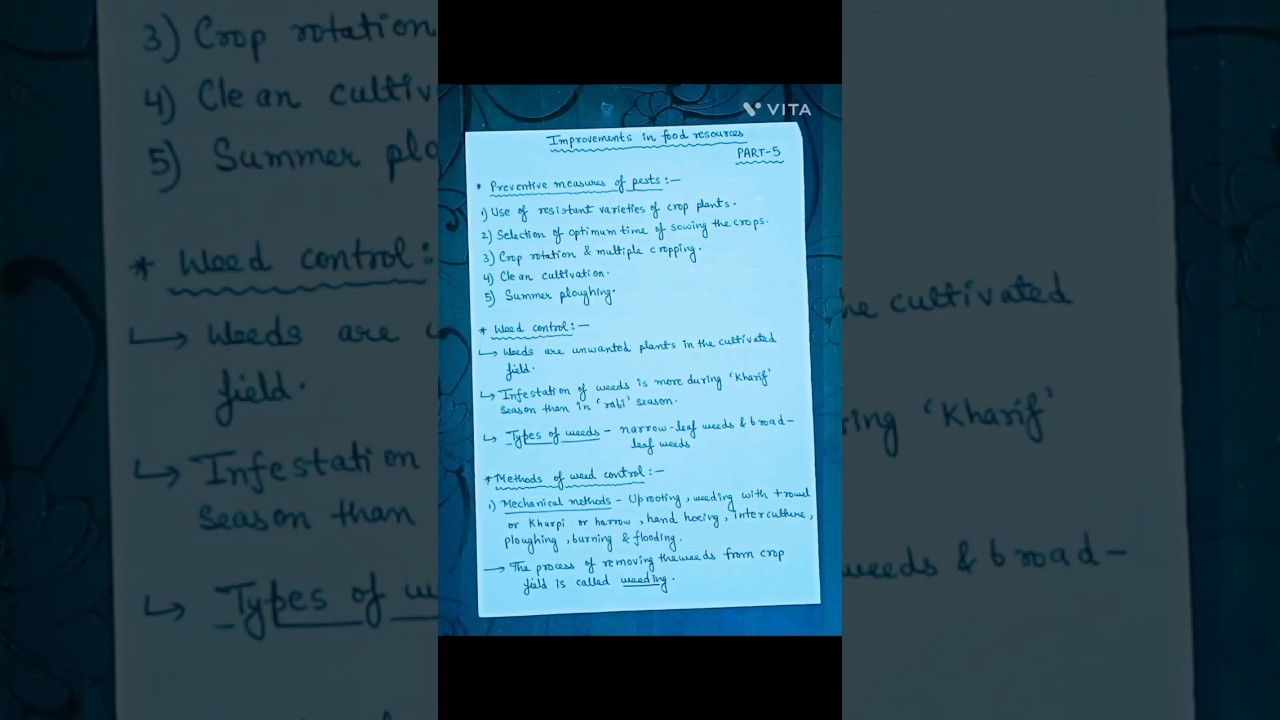 VITA
Improvements in food resources
PART-5
* Preventive measures of pests :-
1) Use of resistant varieties of crop plants.
2) Selection of optimum time of sowing the crops.
3) Crop rotation & multiple cropping.
4) Clean cultivation.
5) Summer ploughing.
* Weed control :-
↳ Weeds are unwanted plants in the cultivated
field.
↳ Infestation of weeds is more during 'Kharif'
season than in 'rabi' season.
↳ Types of weeds - narrow-leaf weeds & broad-
leaf weeds
* Methods of weed control :-
1) Mechanical methods - Uprooting, weeding with trowel
or Khurpi or harrow, hand hoeing, interculture,
ploughing, burning & flooding.
→ The process of removing the weeds from crop
field is called weeding.
3) Crop rotation
4) Clean cultiv
5) Summer plo
* Weed control :
↳ Weeds are
field.
↳ Infestation
season than
↳ Types of we
he cultivated
ring 'Kharif'
weeds & broad-